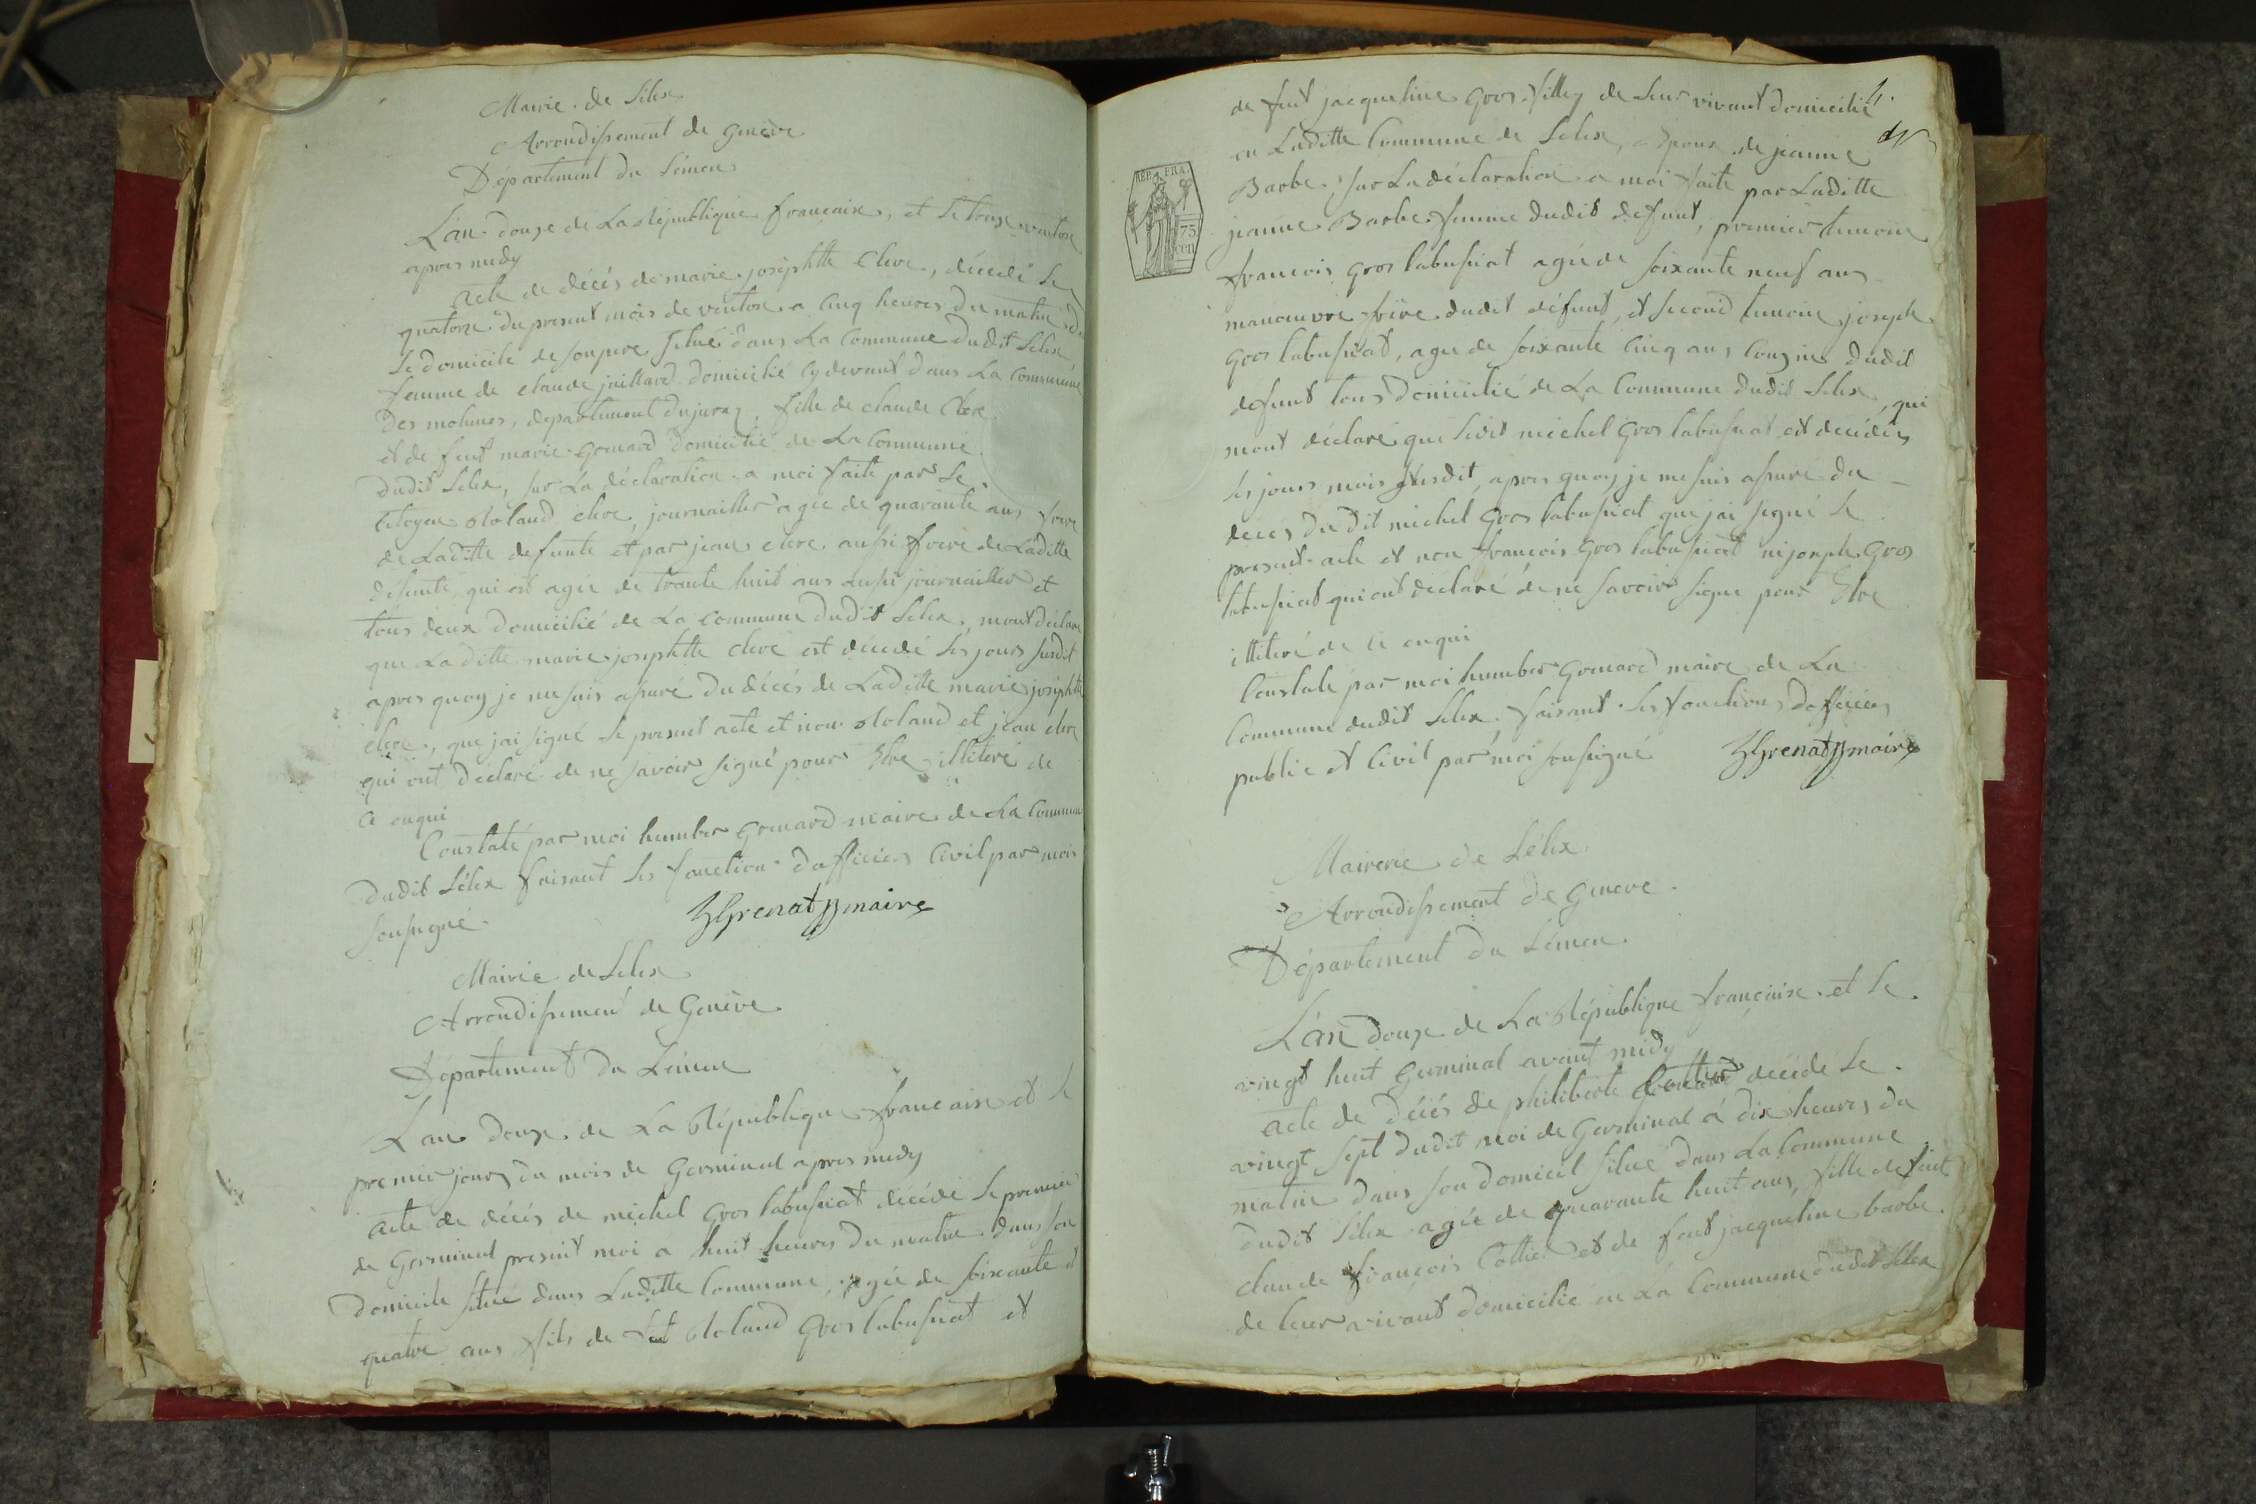 Mairie de Lelex
Arrondissement de Genève
Département du Léman
L'an douze de La République française, et le  ventose
apres midy
acte de décés de marie josephtte Clerc, décedé le
quatorze du present mois de ventose a cinq heures du matin
le domicile de son pere situé dans La Commune dudit Lelex
femme de claude juillard domicilié cy devant dans La Commune
des molunes, departement du jura, fille de claude Clerc
et de feut marie gomard domicilié de La Commune
dudit Lelex, sur La déclaration a moi faite par le
Citoyen Roland clerc, journaillier agée de quarante ans frere
de Laditte defunte et par jean clerc aussi frere de Laditte
défunte, qui est agée de trante huit ans aussi journaillier et
tous deux domicilié de La Commune dudit Lelex, mont déclaré
que La ditte marie josephtte clerc est décedé les jours susdit
apres quoy je me suis assuré du décés de Laditte marie josephtte
clerc, que jai signé le present acte et non Roland et jean clerc
qui ont déclaré de ne savoir signé pour Etre illiteré de
ce enqui
Constaté par moi humber gomard maire de La Commune
dudit Lélex faisant les fonction dofficier Civil par moi
sousigné. HGrenat maire
Mairie de Lelex
Arrondissement de Genève
Département du Léman
Lan douze de La République française et le
premier jours du mois de Germinal apres midy
acte de décés de michel gros labussiat décédé le premier
de Germinal present moi a huit heures du matin dans son
domicile situé dans Laditte Commune, agée de soixante et
quatre ans fils de feut Roland Gros labussiat et
4.
de feut jacqueline gros filley de leur vivant domicilié
en Laditte Commune de Lelex, epoux de jeanne
Barbe, sur La déclaration a moi faite par Laditte
jeanne Barbe femme dudit defunt, premier temoin
francois gros labussiat agée de soixante neuf ans
manoeuvre frère dudit défunt, et second temoin joseph
gros labussiat, agée de soixante cinq ans cousin dudit
defunt tous domicilié de La Commune dudit Lelex, qui
mont déclaré que ledit michel gros labussiat est décédé
les jours mois susdit, apres quoy je me suis assuré du
deces du dit michel Gros labussiat que jai signé le
present acte et non francois Gros labussiat ni joseph Gros
labussiat qui ont déclaré de ne savoir signe pour Etre
illiteré de ce enqui
Constaté par moi humber gomard maire de La
Commune dudit Lelex, faisant les fonctions dofficier
public et Civil par moi sousigné HGrenat maire
REP. FRA.
75
CEN
Mairerie de Lélex
Arrondissement de Geneve.
Département du Léman.
L'an douze de La République française et le.
vingt huit Germinal avant midy
acte de décés de philiberte  décédé le.
vingt sept dudit moi de Germinal à dix heures du
matin dans son domicil situé dans La Commune
dudit Lélex agée de quarante huit ans, fille de feut
claude francois Cottier et de feut jacqueline barbe.
de leur vivant domicilié en La Commune dudit Lelex